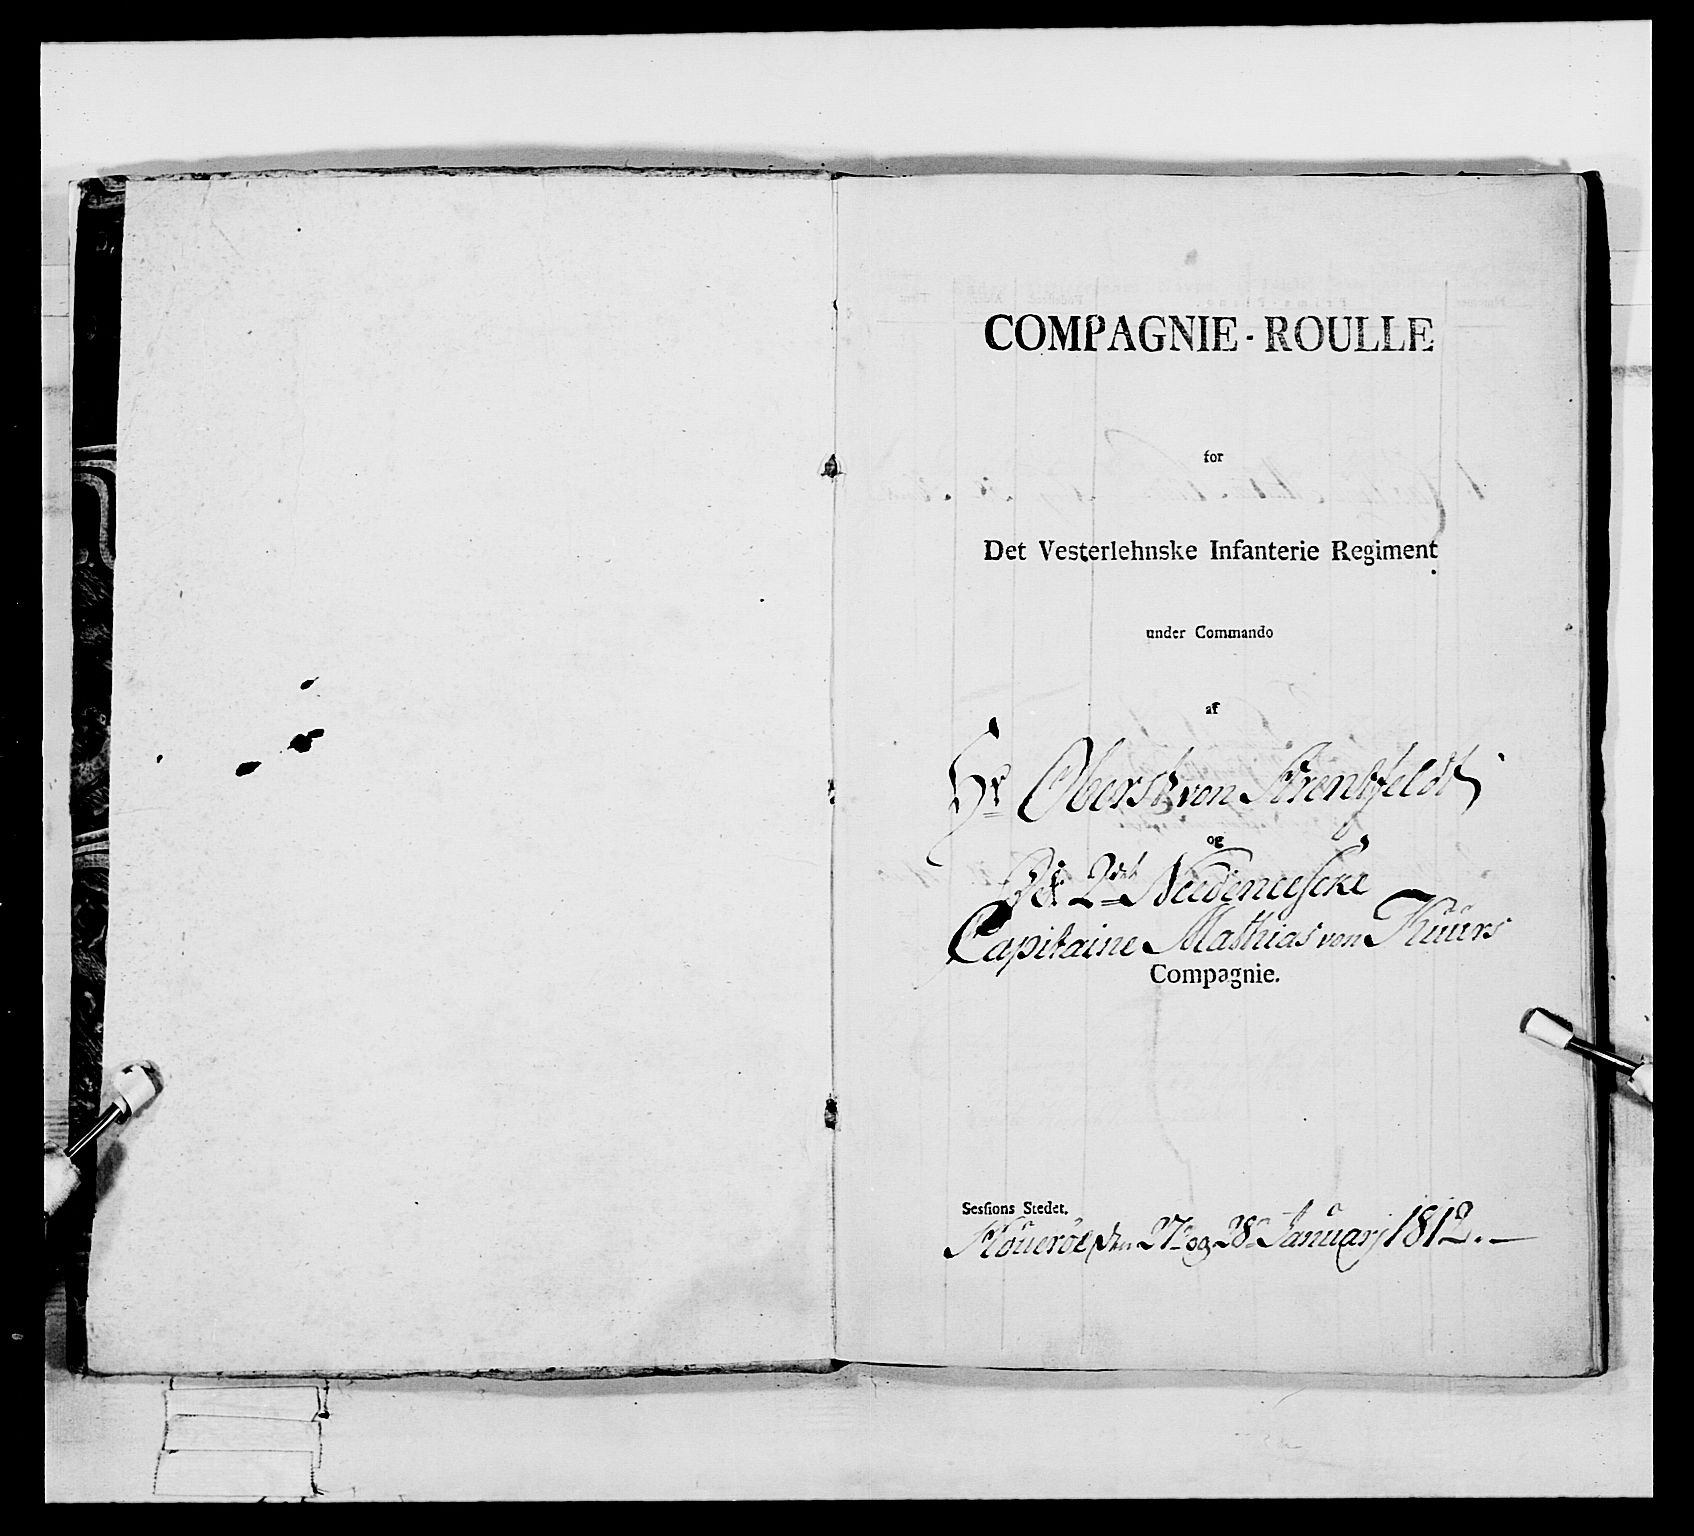 COMPAGNIE-ROULLE
for
Det Vesterlehnske Infanterie Regiment
under Commando
af
Hr Oberst von Krentzfeldt
og
Det 2det Needenceske
Capitaine Mathias von Kuurs
Compagnie.
Sessions Stedet.
Flouerøe den 27 og 28 Januarj 1812.